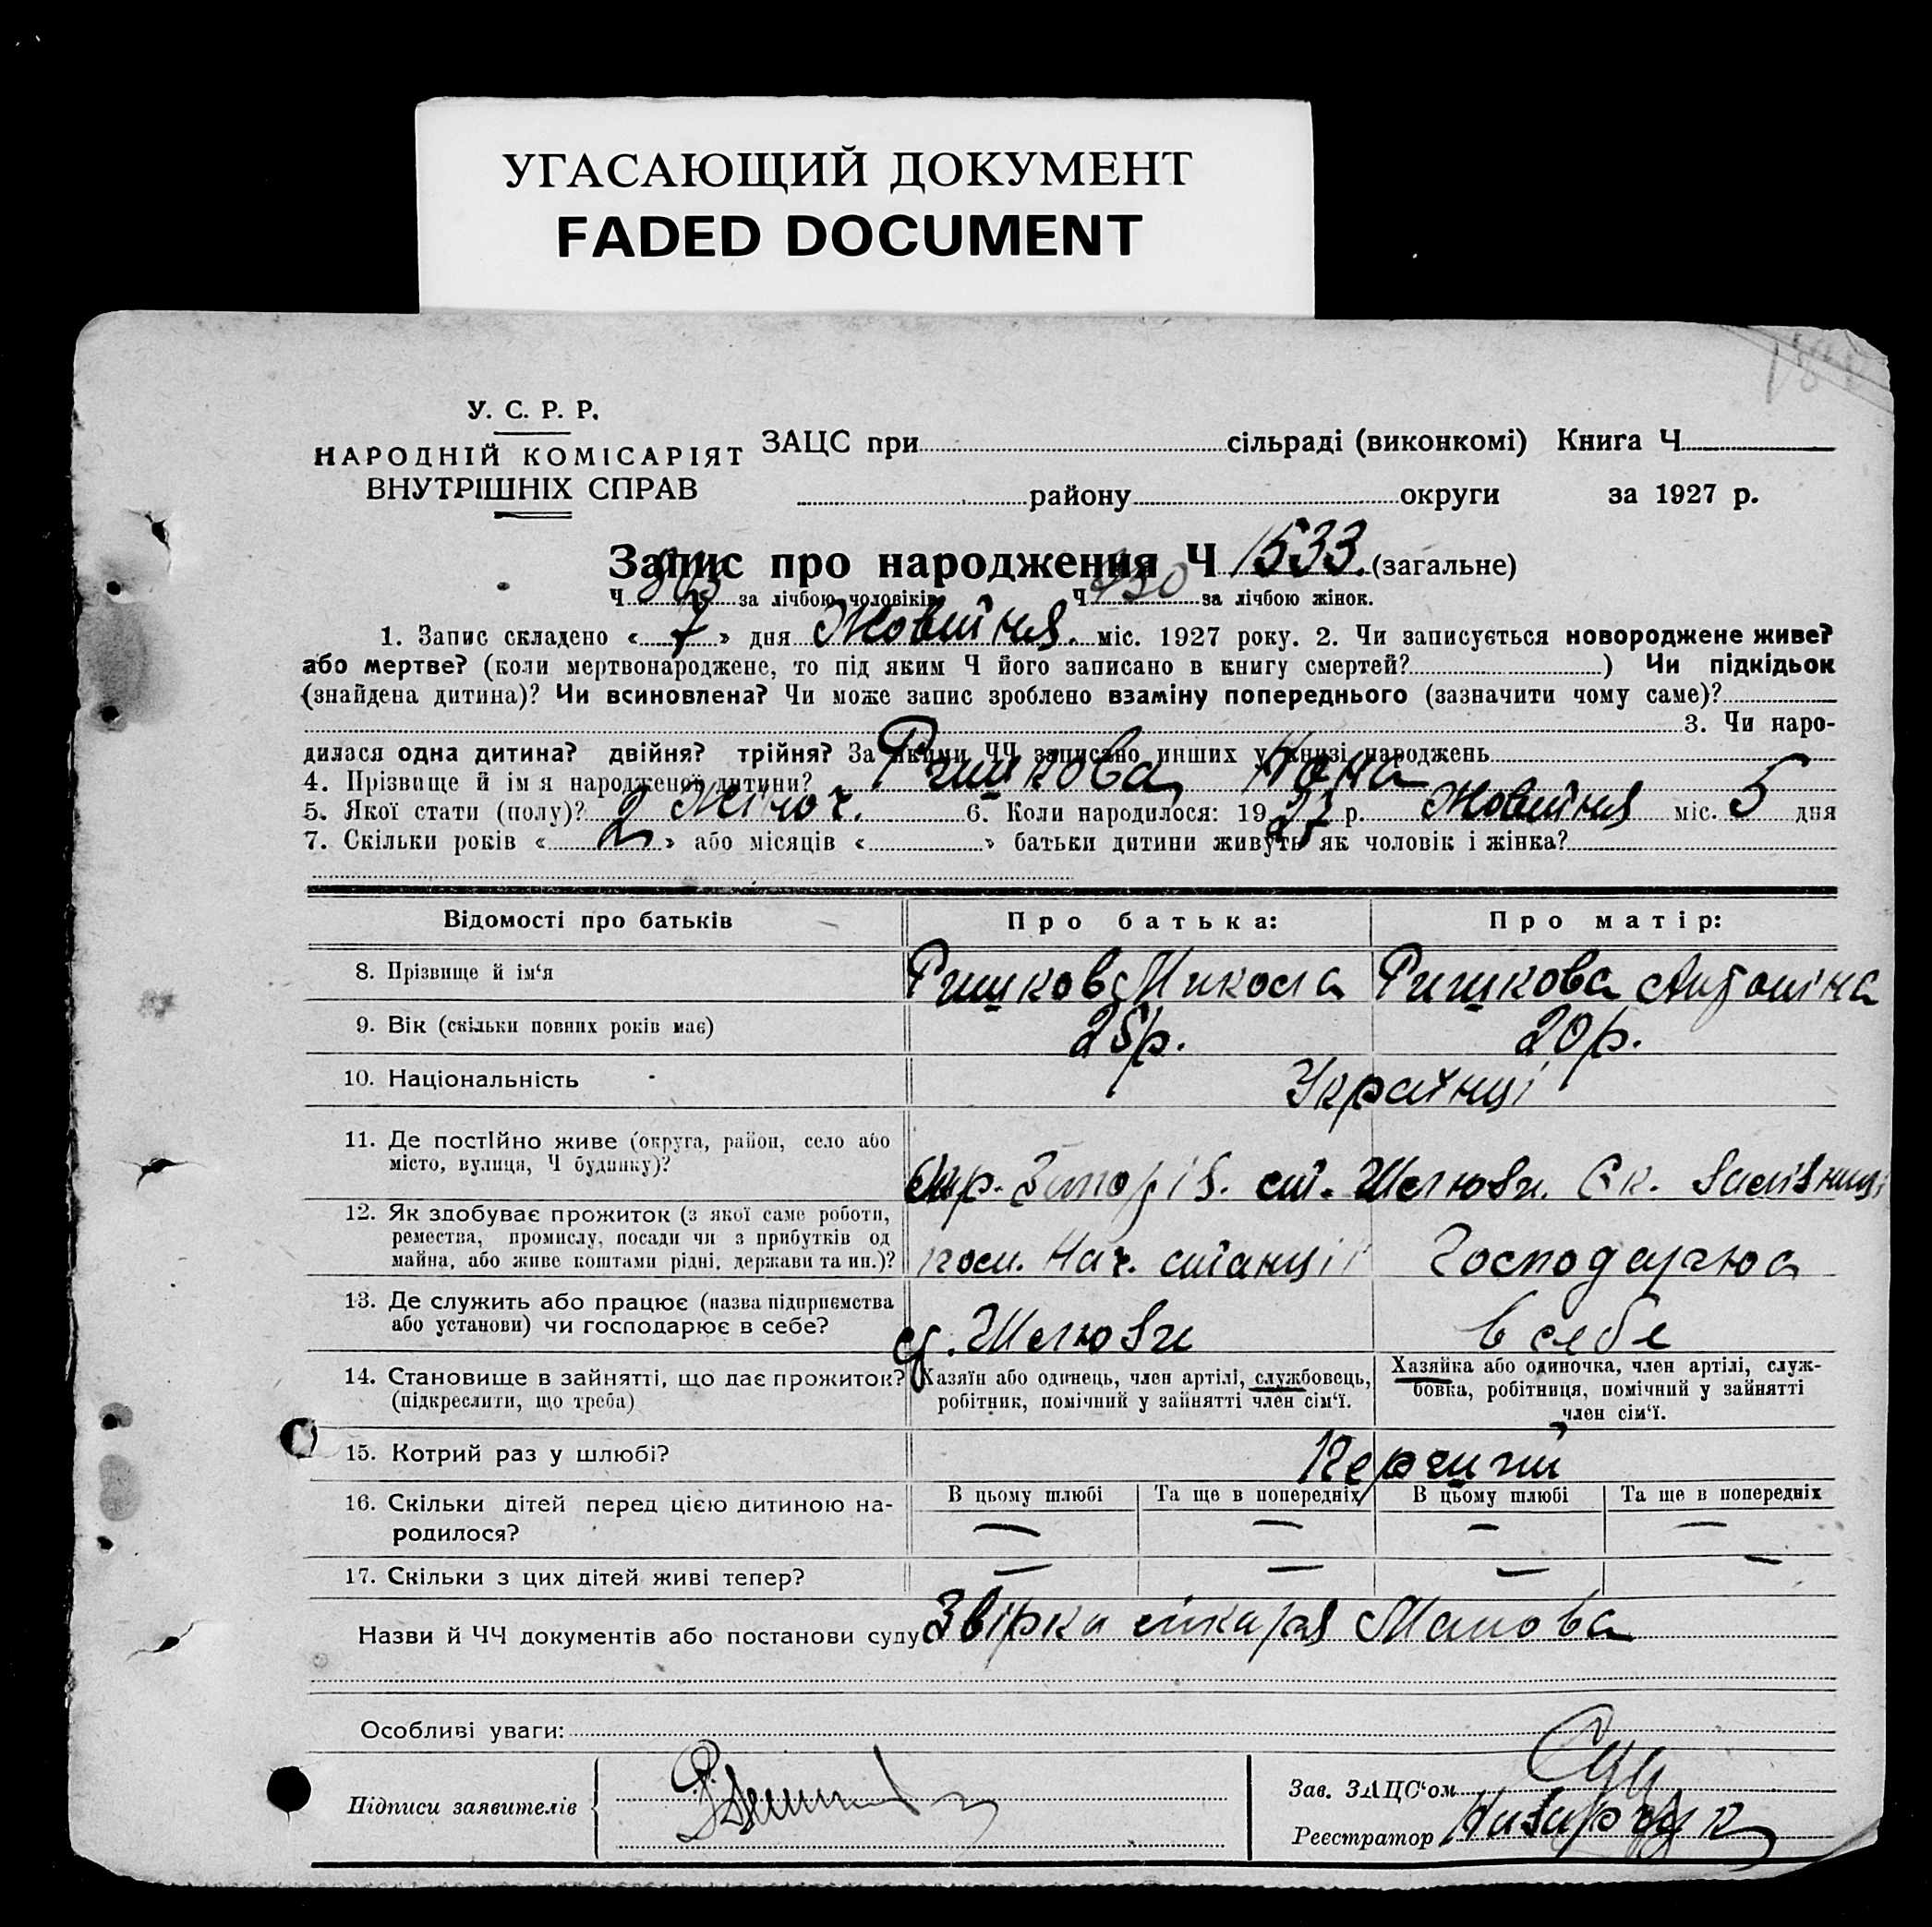 УГАСАЮЩИЙ ДОКУМЕНТ
FADED DOCUMENT
У. С. Р. Р.
НАРОДНІЙ КОМІСАРІЯТ
ВНУТРІШНІХ СПРАВ
ЗАЦС при сільраді (виконкомі) Книга Ч
району округи за 1927 р.
Запис про народження Ч 1533. (загальне)
Ч за лічбою чоловіків Ч за лічбою жінок.
1. Запис складено « 7 » дня Жовтня. міс. 1927 року. 2. Чи записується новороджене живе?
або мертве? (коли мертвонароджене, то під яким Ч його записано в книгу смертей? ) Чи підкідьок
(знайдена дитина)? Чи всиновлена? Чи може запис зроблено взаміну попереднього (зазначити чому саме)?
3. Чи наро-
дилася одна дитина? двійня? трійня? За якими ЧЧ записано инших у книзі народжень
4. Прізвище й ім я народженої дитини? Ришкова
5. Якої стати (полу)? 2 Жіноч. 6. Коли народилося: 19 27 р. Жовтня міс. 5 дня
7. Скільки років « 2 » або місяців « » батьки дитини живуть як чоловік і жінка?
Відомості про батьків Про батька: Про матір:
8. Прізвище й ім'я Ришков Микола Ришкова Антоніна
9. Вік (скільки повних років має) 25р. 20р.
10. Національність Українці
11. Де постійно живе (округа, район, село або
місто, вулиця, Ч будинку)?
12. Як здобуває прожиток (з якої саме роботи,
ремества, промислу, посади чи з прибутків од
майна, або живе коштами рідні, держави та ин.)? пом. Нач. станції Господарчюа
13. Де служить або працює (назва підприємства
або установи) чи господарює в себе? в себе
14. Становище в зайнятті, що дає прожиток?
(підкреслити, що треба)
Хазяїн або одинець, член артілі, службовець,
робітник, помічний у зайнятті член сім'ї.
Хазяйка або одиночка, член артілі, служ-
бовка, робітниця, помічний у зайнятті
член сім'ї.
15. Котрий раз у шлюбі? Перший
16. Скільки дітей перед цією дитиною на-
родилося?
В цьому шлюбі Та ще в попередніх В цьому шлюбі Та ще в попередніх
— — — —
17. Скільки з цих дітей живі тепер? — — — —
Назви й ЧЧ документів або постанови суду Звірка лікаря
Особливі уваги:
Підписи заявителів
Зав. ЗАЦС'ом
Реєстратор Назарчук